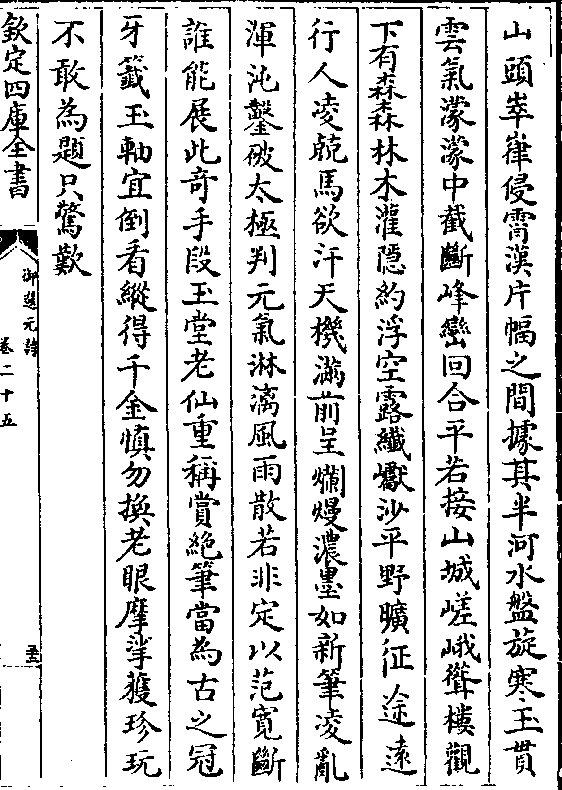 山頭崒嵂侵霄漢片幅之間據其半河水盤旋寒玉貫
雲氣濛濛中截斷峰巒回合平若接山城嵯峨聳樓觀
下有森森林木灌隱約浮空露纖巘沙平野曠征途遠
行人凌兢馬欲汗天機滿前呈爛熳濃墨如新筆凌亂
渾沌鑿破太極判元氣淋漓風雨散若非定以范寛斷
誰能展此奇手段玉堂老仙重稱賞絶筆當為古之冠
牙籤玉軸宜倒看縱得千金慎勿換老眼摩挲獲珍玩
不敢為題只驚歎
欽定四庫全書
御選元詩
卷二十五